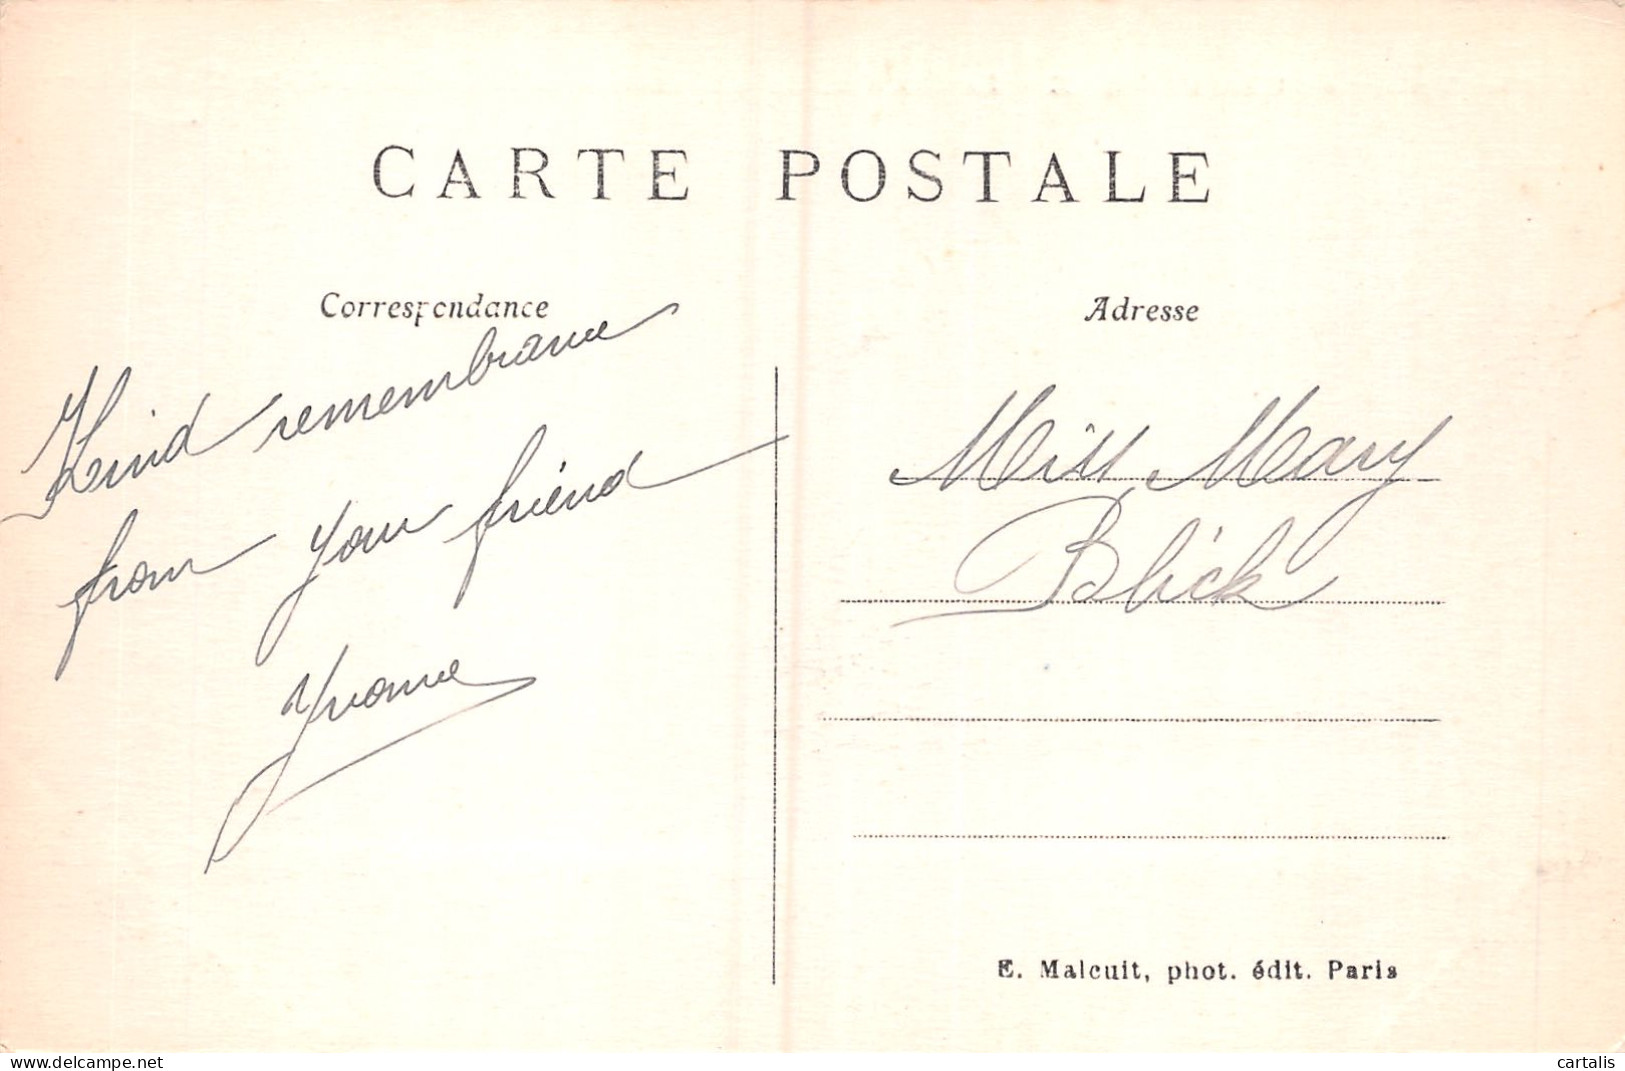 CARTE POSTALE
Correspondance
Adresse
Kind remembrance
from your friend
Yvonne
Miss Mary
Blick
E. Malcuit, phot. édit. Paris
delcampe.net
cartalis